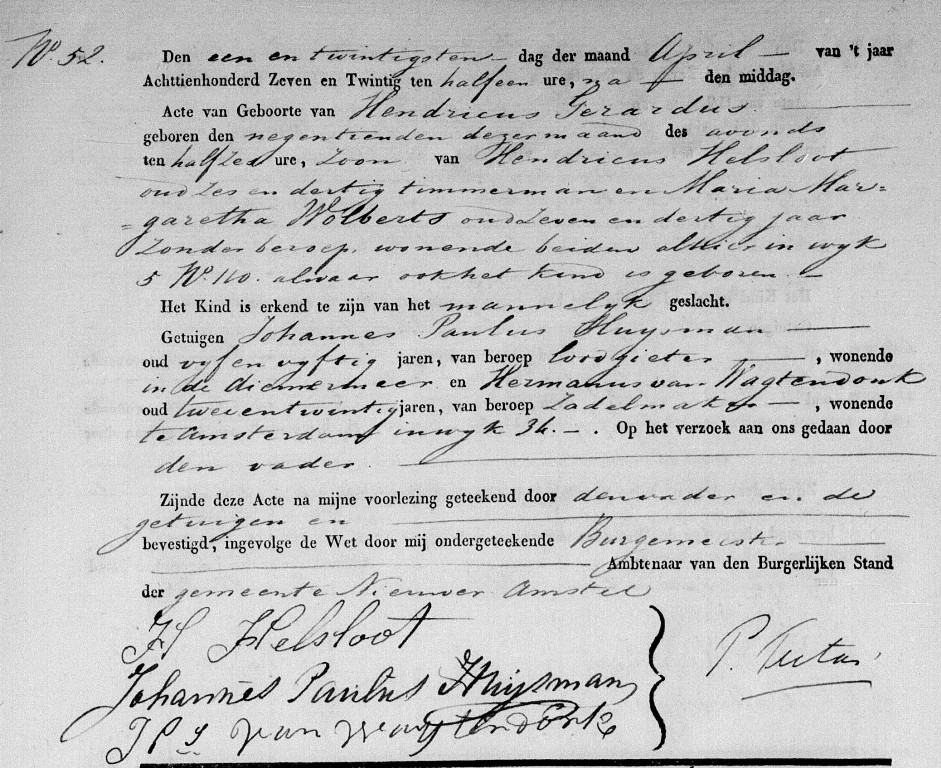 No. 52.
Den een en twintigsten dag der maand April van 't jaar
Achttienhonderd Zeven en Twintig ten half een ure, na den middag.
Acte van Geboorte van Hendricus Gerardus
geboren den negentienden dezer maand des avonds
ten half zes ure, zoon van Hendricus Helsloot
oud zes en dertig timmerman en Maria Mar=
=garetha Wolberts oud zeven en dertig jaar
zonder beroep, wonende beiden alhier in wyk
5 No. 110. alwaar ook het kind is geboren.
Het Kind is erkend te zijn van het mannelyk geslacht.
Getuigen Johannes Paulus Huysman
oud vyf en vyftig jaren, van beroep loodgieter, wonende
in de diemermeer en Hermanus van Wagtendonk
oud twee en twintig jaren, van beroep Zadelmaker, wonende
te Amsterdam in wyk 34. Op het verzoek aan ons gedaan door
den vader.
Zijnde deze Acte na mijne voorlezing geteekend door den vader en de
getuigen en
bevestigd, ingevolge de Wet door mij ondergeteekende Burgemeester
Ambtenaar van den Burgerlijken Stand
der gemeente Nieuwer Amstel
H Helsloot
Johannes Paulus Huijsman
van Wagtendonk